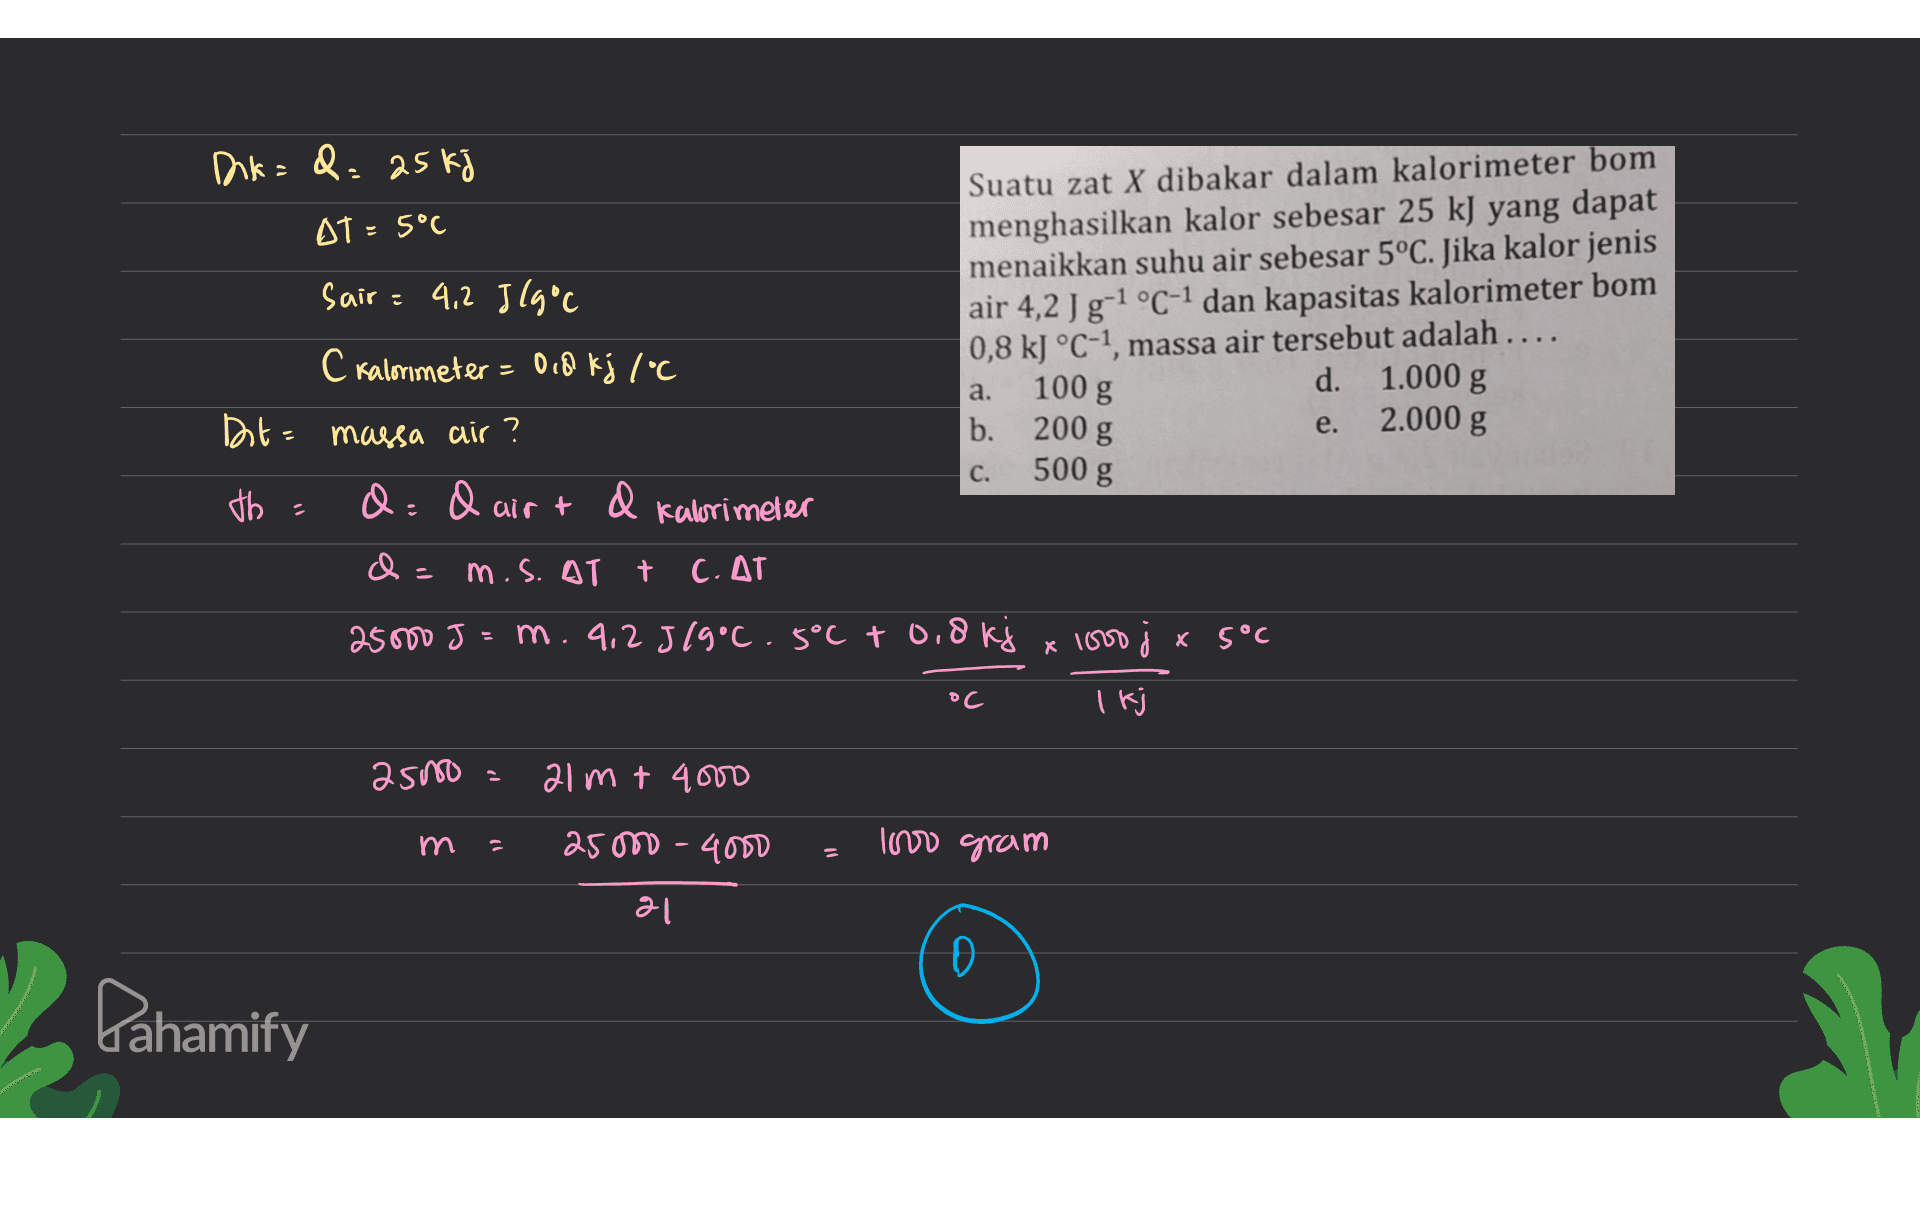 Dik = Q = 25 kj
ΔT = 5°C
Sair = 4,2 J/g°C
C kalorimeter = 0,8 kj/°C
Dit = massa air ?
Jb = Q = Q air + Q kalorimeter
Q = m.s. ΔT + C. ΔT
25000 J = m . 4,2 J/g°C . 5°C + 0,8 kj x 1000 j x 5°C
°C 1 kj
25000 = 21 m + 4000
m = 25000 - 4000 = 1000 gram
21
D
Suatu zat X dibakar dalam kalorimeter bom
menghasilkan kalor sebesar 25 kJ yang dapat
menaikkan suhu air sebesar 5°C. Jika kalor jenis
air 4,2 J g⁻¹ °C⁻¹ dan kapasitas kalorimeter bom
0,8 kJ °C⁻¹, massa air tersebut adalah ....
a. 100 g d. 1.000 g
b. 200 g e. 2.000 g
c. 500 g
Pahamify